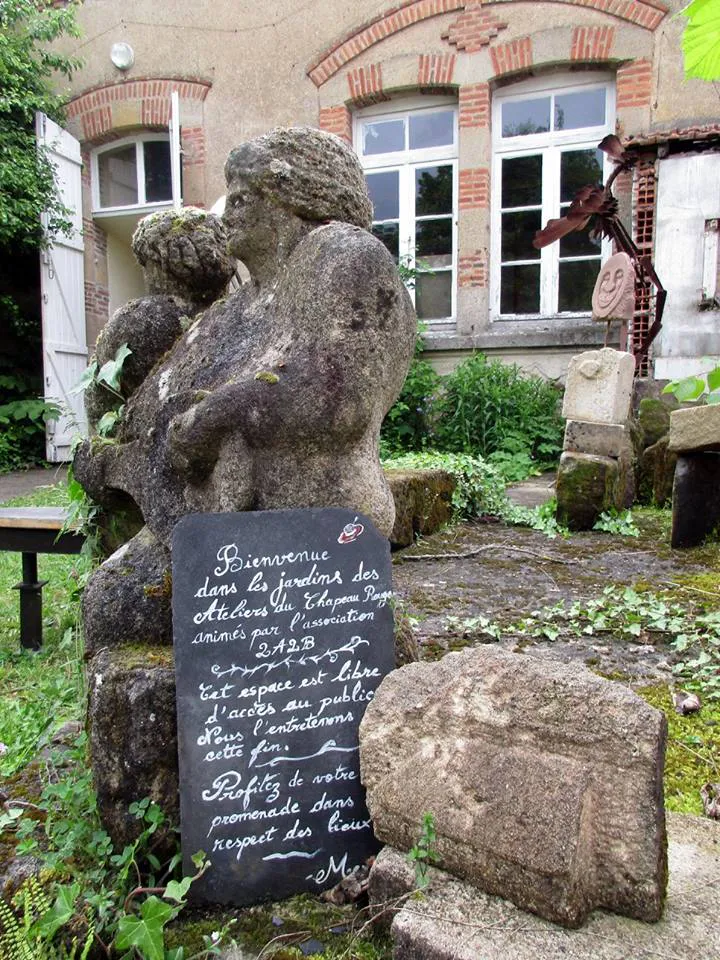 Bienvenue
dans les jardins des
Ateliers du Chapeau Rouge
animés par l'association
2A2B
Cet espace est libre
d'accès au public
Nous l'entretenons
cette fin.
Profitez de votre
promenade dans
respect des lieux